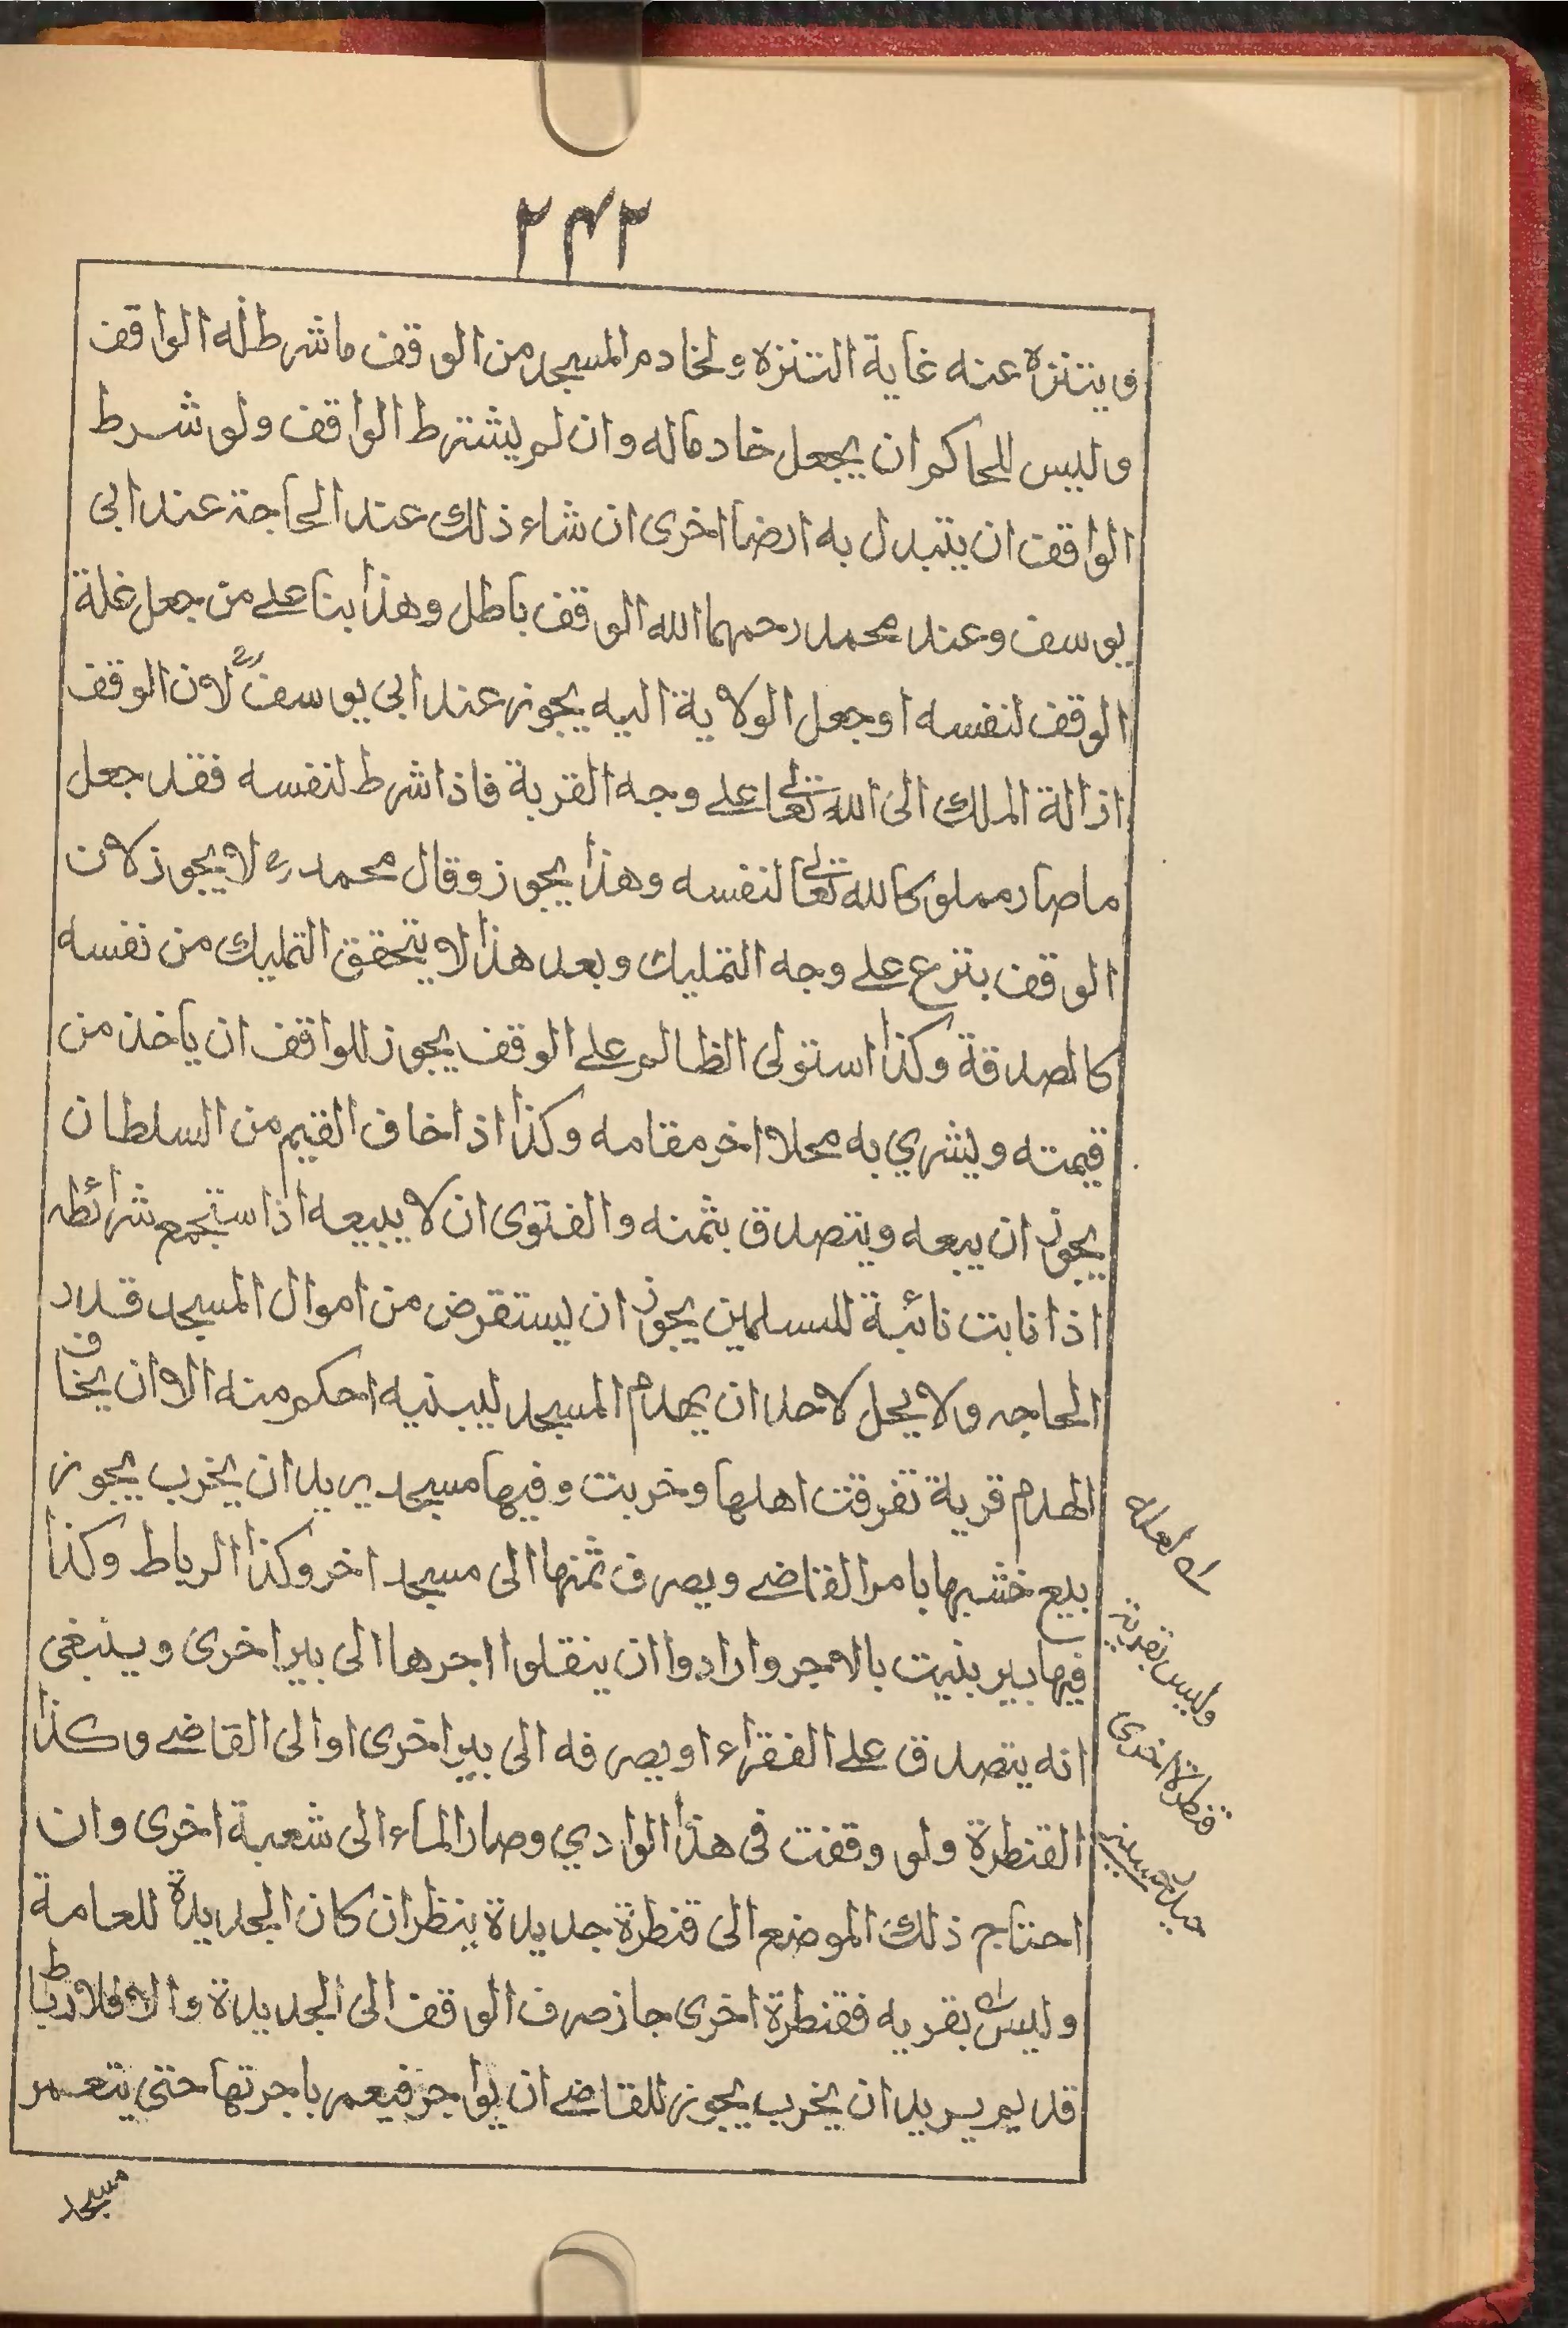 ٢٤٢
ويتنزه عنه غاية التنزه ولخادم المسجد من الوقف ما شرط له الواقف
وليس للحاكم ان يجعل خادما له وان لم يشترط الواقف ولو شرط
الواقف ان يتبدل به ارضا اخرى ان شاء ذلك عند الحاجة عند ابى
يوسف وعند محمد رحمهما الله الوقف باطل وهذا بنا على من جعل غلة
الوقف لنفسه او جعل الولاية اليه يجوز عند ابى يوسف رح لان الوقف
ازالة الملك الى الله تعالى على وجه القربة فاذا شرط لنفسه فقد جعل
ما صار مملوكا لله تعالى لنفسه وهذا يجوز وقال محمد رح لا يجوز لان
الوقف بتزع على وجه التمليك وبعد هذا لا يتحقق التمليك من نفسه
كالصدقة وكذا استولى الظالم على الوقف يجوز للواقف ان ياخذ من
قيمته ويشري به محلا اخر مقامه وكذا اذا خاف القيم من السلطان
يجوز ان يبعه ويتصدق بثمنه والفتوى ان لا يبيعه اذا ستجمع شرائطه
اذا نابت نائبة للمسلمين يجوز ان يستقرض من اموال المسجد قدر
الحاجه ولا يحل لاحد ان يهدم المسجد ليبنيه احكم منه الا ان يخاف
الهدم قرية تفرقت اهلها وخربت وفيها مسجد يريد ان يخرب يجوز
بيع خشبها بامر القاضي ويصرف ثمنها الى مسجد اخر وكذا الرباط وكذا
فيها بير بنيت بالاجر وارادوا ان ينقلوا اجرها الى بير اخرى وينبغى
انه يتصدق على الفقراء او يصرفه الى بير اخرى او الى القاضي وكذا
القنطرة ولو وقفت فى هذا الوادي وصار الماء الى شعبة اخرى وان
احتاج ذلك الموضع الى قنطرة جديدة ينظر ان كان الجديدة للعامة
وليس بقربه فقنطرة اخرى جاز صرف الوقف الى الجديدة والا فلا رباط
قديم يريد ان يخرب يجوز للقاضي ان يواجر فيعمر باجرتها حتى يتعمر
وليس بقربه
قنطرة اخرى
مسجد